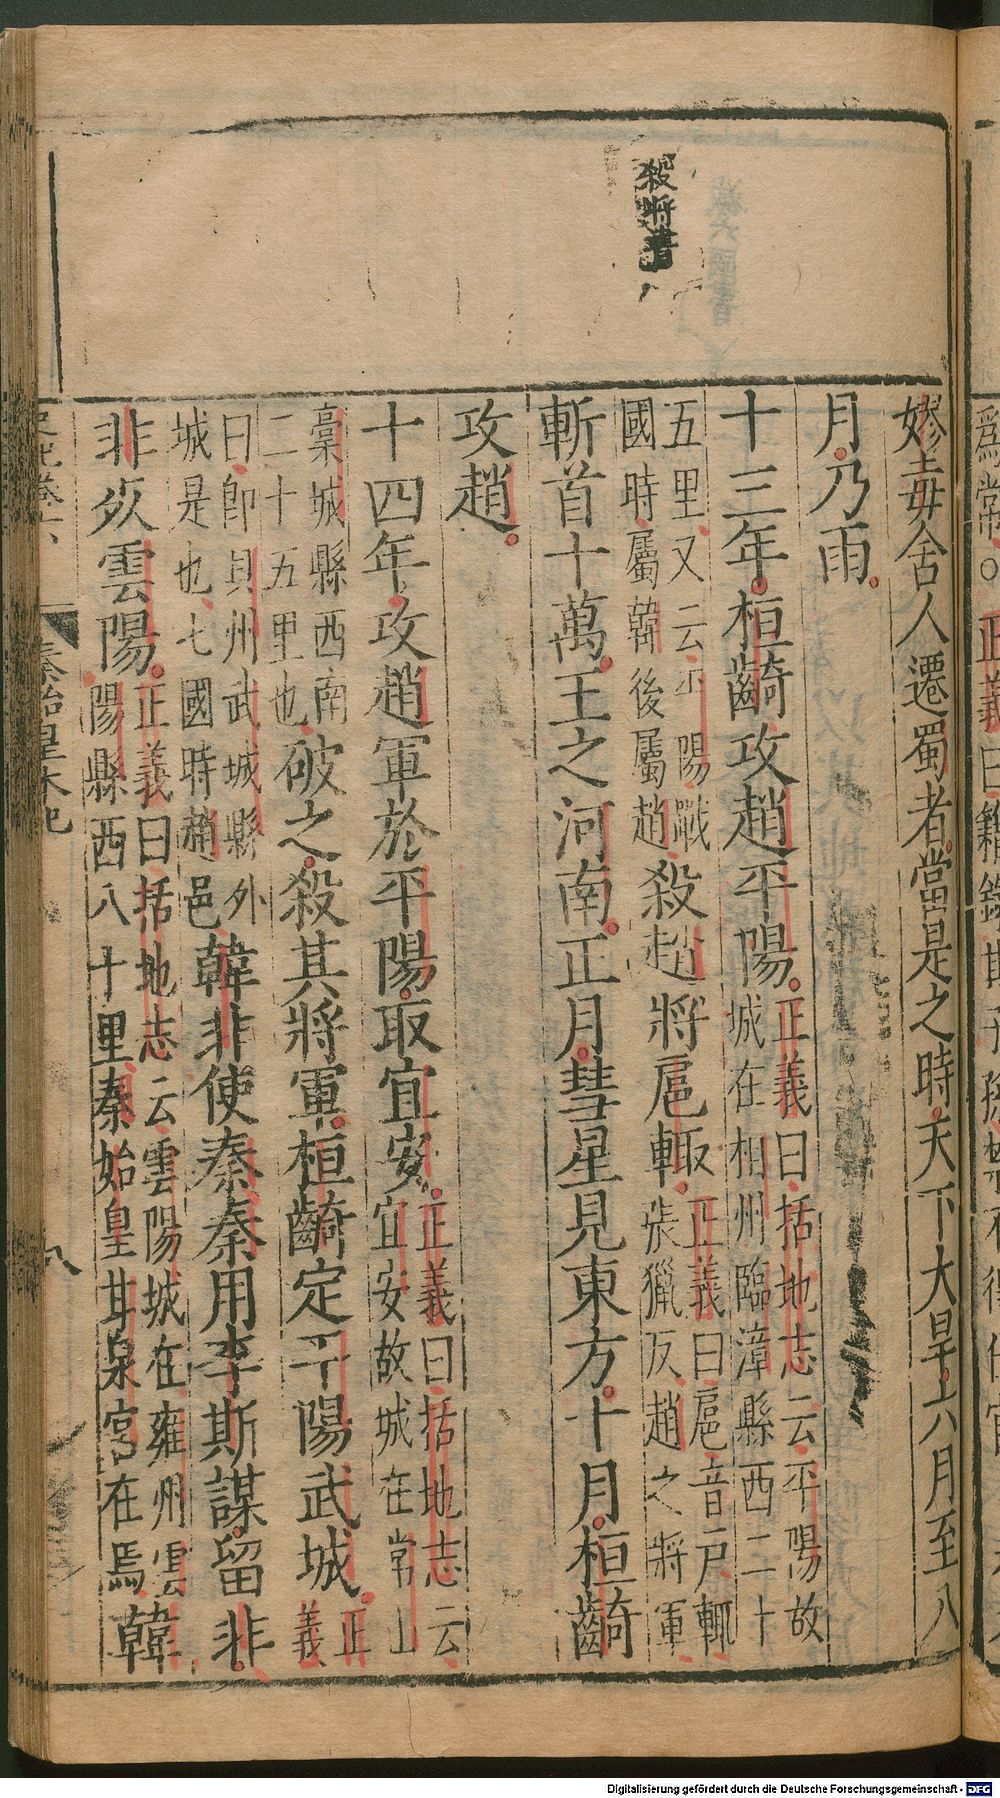 殺將書
嫪毐舍人遷蜀者當是之時天下大旱六月至八
月乃雨
十三年桓齮攻趙平陽正義曰括地志云平陽故
城在相州臨漳縣西二十
五里又云平陽戰
國時屬韓後屬趙殺趙將扈輒正義曰扈音戸輒
張獵反趙之將軍
斬首十萬王之河南正月彗星見東方十月桓齮
攻趙
十四年攻趙軍於平陽取宜安正義曰括地志云
宜安故城在常山
藁城縣西南
二十五里也破之殺其將軍桓齮定平陽武城正
義
曰即貝州武城縣外
城是也七國時趙邑韓非使秦秦用李斯謀留非
非死雲陽正義曰括地志云雲陽城在雍州雲
陽縣西八十里秦始皇甘泉宮在焉韓
史記卷六
秦始皇本紀
八
Digitalisierung gefördert durch die Deutsche Forschungsgemeinschaft - DFG